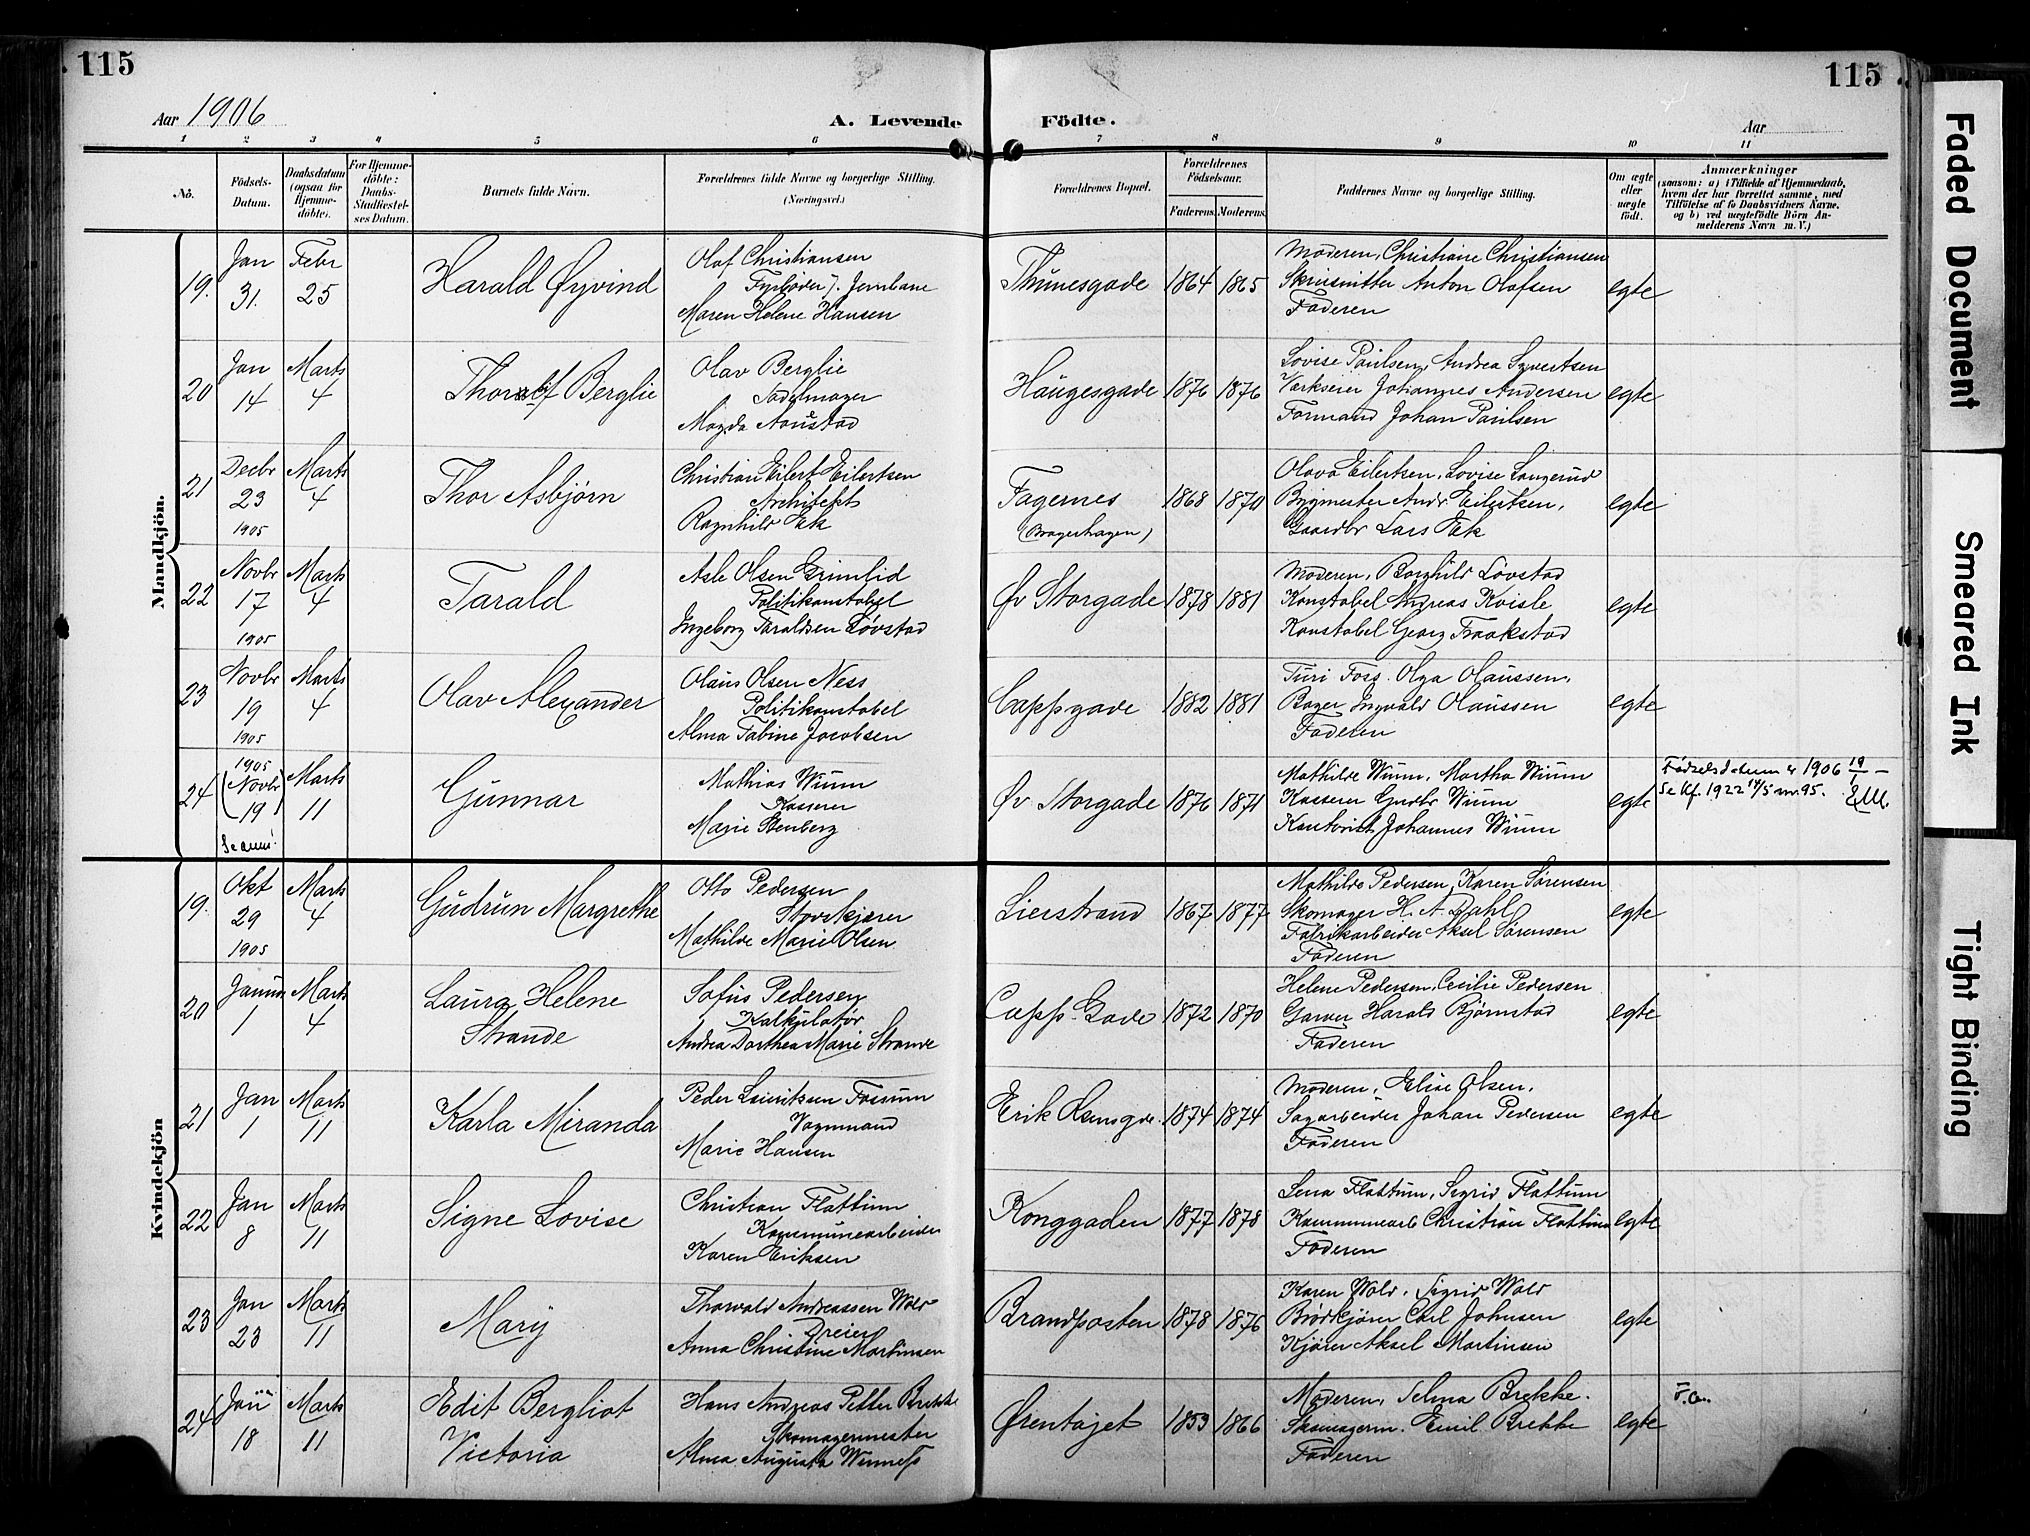 115
115
Aar 1906
A. Levende Födte.
Aar
1 2 3 4 5 6 7 8 9 10 11
No.
Födsels-Datum.
Daabsdatum (ogsaa for Hjemmedöbte).
For Hjemmedöbte: Daabs-Stadfæstelses Datum.
Barnets fulde Navn.
Forældrenes fulde Navne og borgerlige Stilling. (Næringsvei.)
Forældrenes Bopæl.
Forældrenes Födselsaar.
Faderens. Moderens.
Faddernes Navne og borgerlige Stilling.
Om ægte eller uægte födt.
Anmærkninger
(saasom: a) i Tilfælde af Hjemmedaab, hvem der har forrettet samme, med Tilföielse af to Daabsvidners Navne, og b) ved uægtefödte Börn Anmelderens Navn m. V.)
Mandkjön.
19. Jan 31. Febr 25
Harald Øyvind
Olaf Christiansen
Fyrbøder v. Jernbane
Maren Helene Hansen
Thunesgade 1864 1865
Moderen, Christiane Christiansen
Skruesnitter Anton Olafsen
Faderen
egte
20 Jan 14 Marts 4
Berglie
Olav Berglie
Sadelmager
Magda Aaustad
Haugesgade 1876 1876
Lovise Paulsen, Andrea Syvertsen
Værkseier Johannes Andersen
Formand Johan Paulsen
egte
21 Decbr 23 1905 Marts 4
Thor Asbjørn
Christian Eilert Eilertsen
Architekt
Ragnhild Fək
Fagernes
(Bragerhagen)
1868 1870
Olava Eilertsen, Lovise Langerud
Bygmester Andr Eilertsen,
Gaardbr Lars
egte
22 Novbr 17 1905 Marts 4
Tarald
Asle Olsen Grimlid
Politikonstabel
Ingeborg Taraldsen Løvstad
Øv Storgade 1878 1881
Moderen, Borghild Løvstad
Konstabel Andreas Kvisle
Konstabel Georg Fraakstad
egte
23 Novbr 19 1905 Marts 4
Olav Alexander
Olaus Olsen Ness
Politikonstabel
Alma Tabine Jacobsen
Cappsgade 1882 1881
Turi Foss. Olga Olaussen,
Bager Ingvald Olaussen
Faderen
egte
24 1905 (Novbr 19) Se anm! Marts 11
Gunnar
Mathias Wium
Kasserer
Marie Stenberg
Øv Storgade 1876 1871
Mathilde Wium, Martha Wium
Kasserer Gudbr Wium
Kontorist Johannes Wium
egte
Fødselsdatum er 1906 19/1 –
Se Kf. 1922 14/5 nr. 95.
Kvindekjön
19. Okt 29 1905 Marts 4
Gudrun Margrethe
Otto Pedersen
Stovskjærer
Mathilde Marie Olsen
Lierstrand 1867 1877
Mathilde Pedersen, Karen Sørensen
Skomager H. A. Dahl
Fabrikarbeider Aksel Sørensen
Faderen
egte
20 Januar 1 Marts 4
Laura Helene
Strande
Sofus Pedersen
Kalkulatør
Andrea Dorthea Marie Strande
Capp. Gade 1872 1870
Helene Pedersen, Cecilie Pedersen
Garver Harald Bjørnstad
Faderen
egte
21 Jan 1 Marts 11
Karla Miranda
Peder Lauritsen Fossum
Vognmand
Marie Hansen
Erik Olsensgd. 1874 1874
Moderen, Elise Olsen,
Sagarbeider Johan Pedersen
Faderen
egte
22 Jan 8 Marts 11
Signe Lovise
Christian Flattum
Kommunearbeider
Karen Eriksen
Konggaden 1877 1878
Lena Flattum, Sigrid Flattum
Kommunearb Christian Flattum
Faderen
egte
23 Jan 23 Marts 11
Mary
Thorvald Andreassen Wold
Dreier
Anna Christine Martinsen
Brandposten 1878 1876
Karen Wold, Sigrid Wold
Brødkjører Carl Johnsen
Kjører Aksel Martinsen
egte
24 Jan 18 Marts 11
Edit Bergliot
Victoria
Hans Andreas Petter Brekke
Skomagermester
Alma Augusta Winness
Ørentøjet 1853 1866
Moderen, Selma Brekke.
Skomagerm. Emil Brekke
Faderen
egte
F.a.
Faded Document
Smeared Ink
Tight Binding